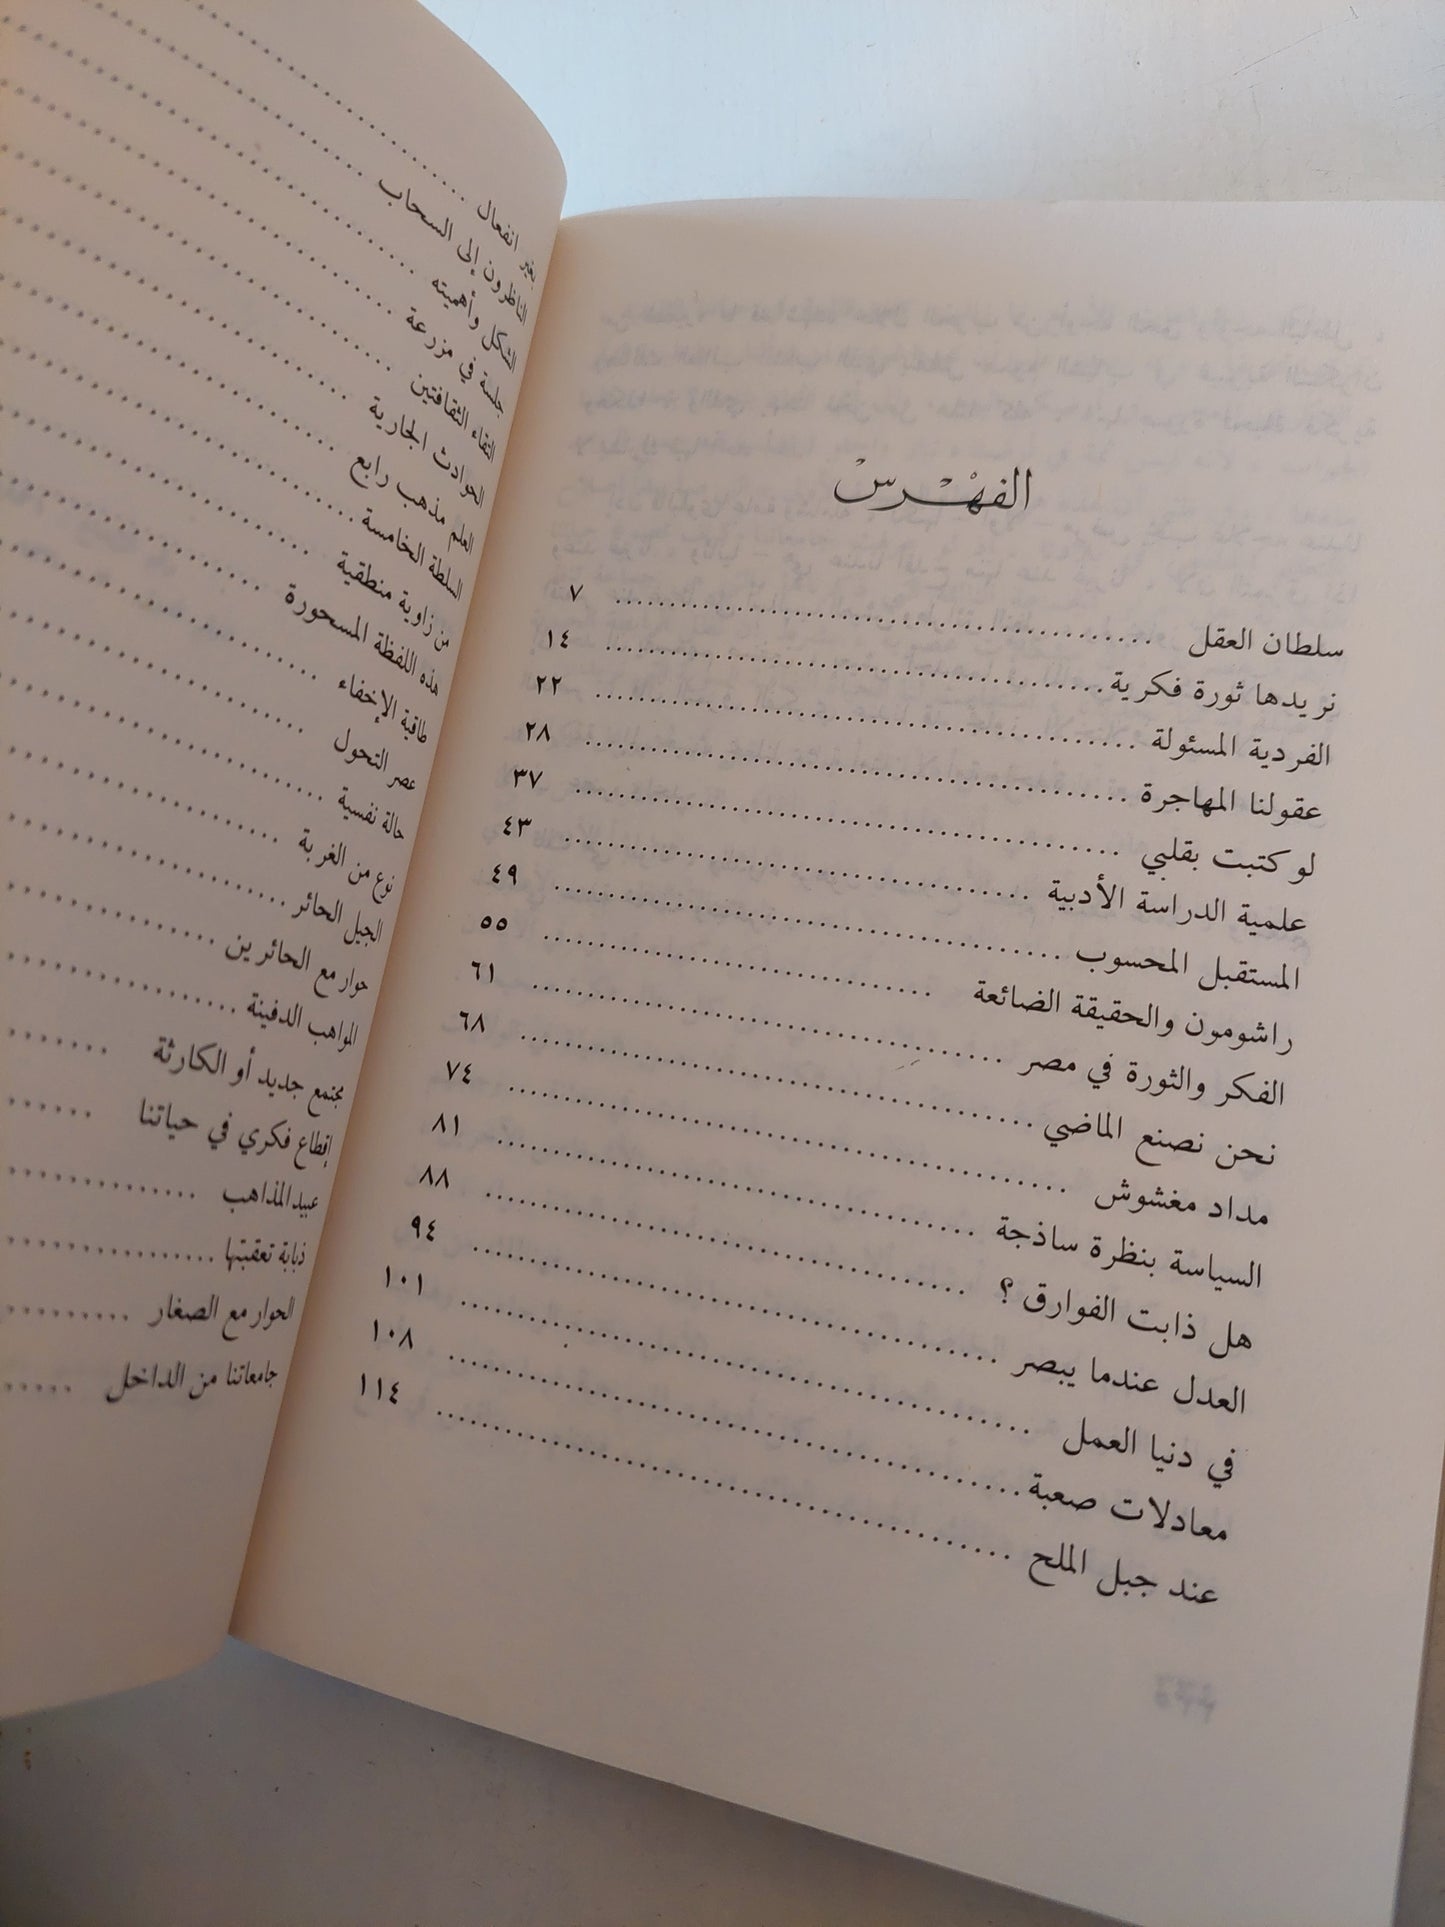 الفهرس
سلطان العقل ........ ٧
نريدها ثورة فكرية ........ ١٤
الفردية المسئولة ........ ٢٢
عقولنا المهاجرة ........ ٢٨
لو كتبت بقلبي ........ ٣٧
علمية الدراسة الأدبية ........ ٤٣
المستقبل المحسوب ........ ٤٩
راشومون والحقيقة الضائعة ........ ٥٥
الفكر والثورة في مصر ........ ٦١
نحن نصنع الماضي ........ ٦٨
مداد مغشوش ........ ٧٤
السياسة بنظرة ساذجة ........ ٨١
هل ذابت الفوارق ؟ ........ ٨٨
العدل عندما يبصر ........ ٩٤
في دنيا العمل ........ ١٠١
معادلات صعبة ........ ١٠٨
عند جبل الملح ........ ١١٤
بغير انفعال ........
الناظرون إلى السحاب ........
الشكل وأهميته ........
جلسة في مزرعة ........
التقاء الثقافتين ........
الحوادث الجارية ........
العلم مذهب رابع ........
السلطة الخامسة ........
من زاوية منطقية ........
هذه اللفظة المسحورة ........
طاقية الإخفاء ........
عصر التحول ........
حالة نفسية ........
نوع من الغربة ........
الجيل الحائر ........
حوار مع الحائرين ........
المواهب الدفينة ........
مجتمع جديد أو الكارثة ........
إقطاع فكري في حياتنا ........
عبيد المذاهب ........
ذبابة تعقبتها ........
الحوار مع الصغار ........
جامعاتنا من الداخل ........